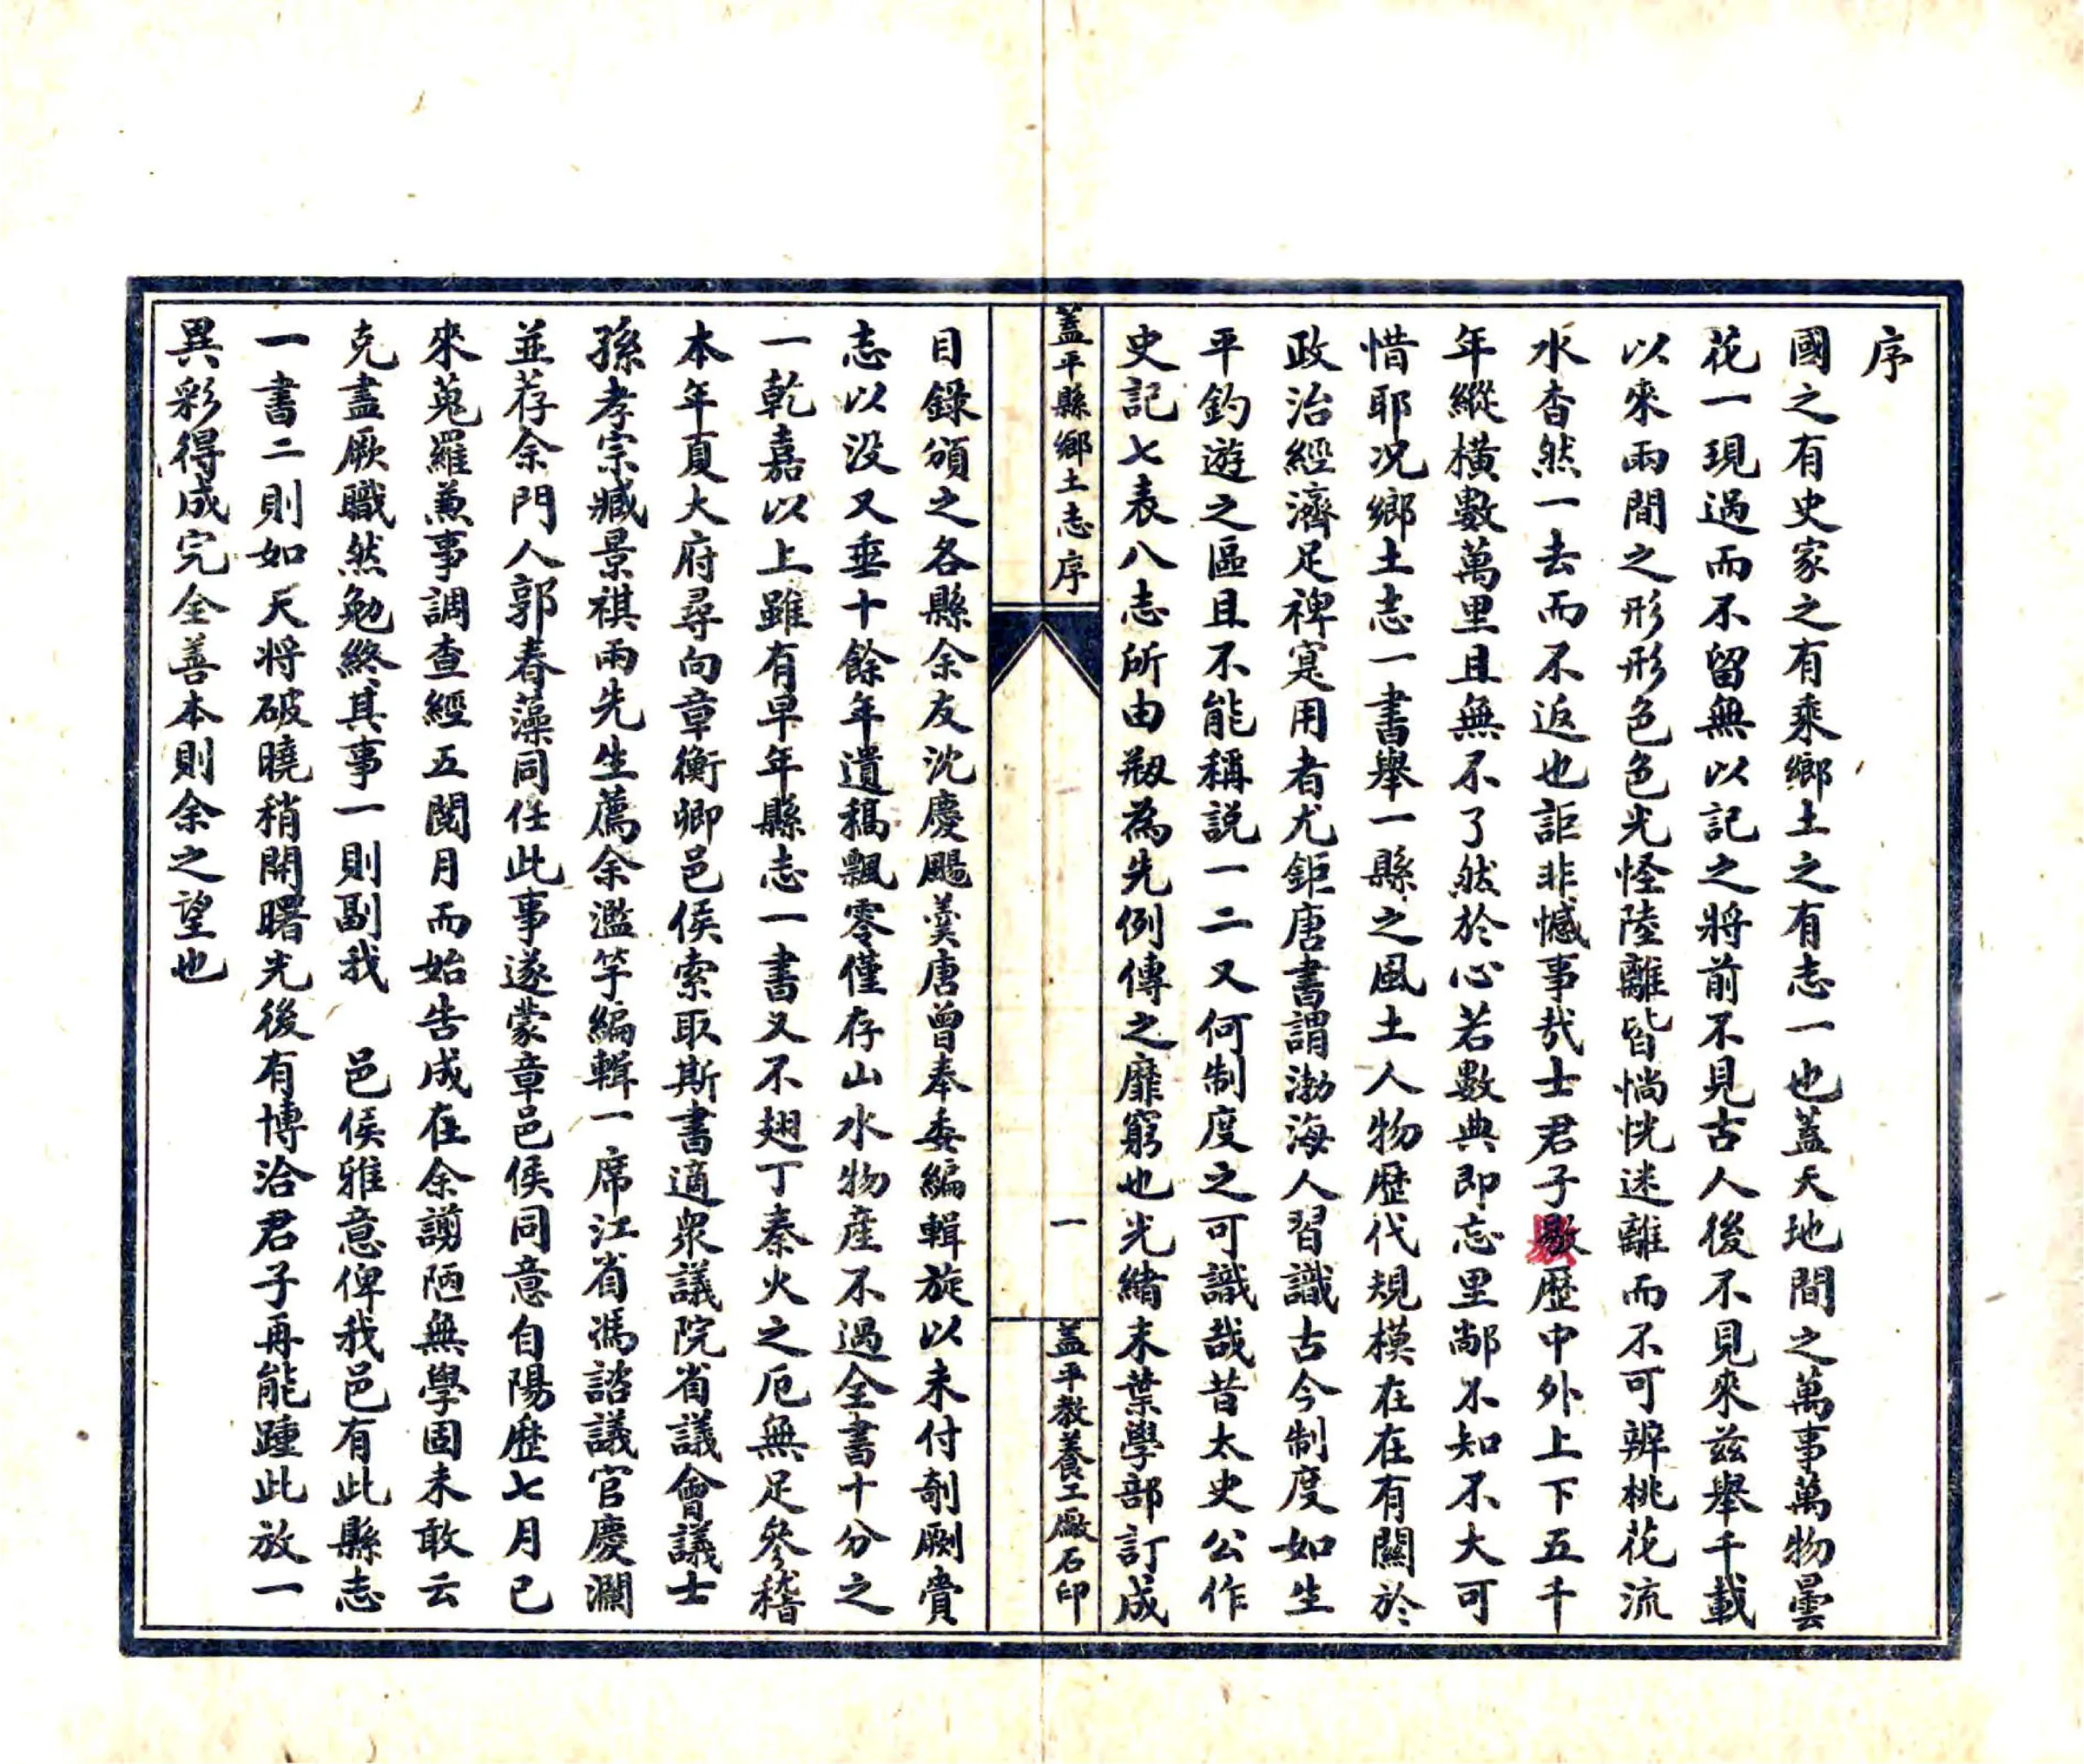 序
國之有史家之有乘鄉土之有志一也蓋天地間之萬事萬物曇
花一現過而不留無以記之將前不見古人後不見來茲舉千載
以來兩間之形形色色光怪陸離皆惝恍迷離而不可辨桃花流
水杳然一去而不返也詎非憾事哉士君子歇歷中外上下五千
年縱橫數萬里且無不了然於心若數典即忘里鄰不知不大可
惜耶況鄉土志一書舉一縣之風土人物歷代規模在在有關於
政治經濟足裨寔用者尤鉅唐書謂渤海人習識古今制度如生
平釣遊之區且不能稱說一二又何制度之可識哉昔太史公作
史記七表八志所由剏為先例傳之靡窮也光緒末葉學部訂成
蓋平縣鄉土志 序
一
蓋平教養工廠石印
目錄頒之各縣余友沈慶颺羹唐曾奉委編輯旋以未付剞劂賫
志以沒又垂十餘年遺稿飄零僅存山水物產不過全書十分之
一乾嘉以上雖有早年縣志一書又不翅丁秦火之厄無足參稽
本年夏大府尋向章衡卿邑侯索取斯書適眾議院省議會議士
孫孝宗臧景祺兩先生薦余濫竽編輯一席江省馮諮議官慶瀾
並荐余門人郭春藻同任此事遂蒙章邑侯同意自陽歷七月已
來蒐羅兼事調查經五閱月而始告成在余謭陋無學固未敢云
克盡厥職然勉終其事一則副我 邑侯雅意俾我邑有此縣志
一書二則如天將破曉稍開曙光後有博洽君子再能踵此放一
異彩得成完全善本則余之望也